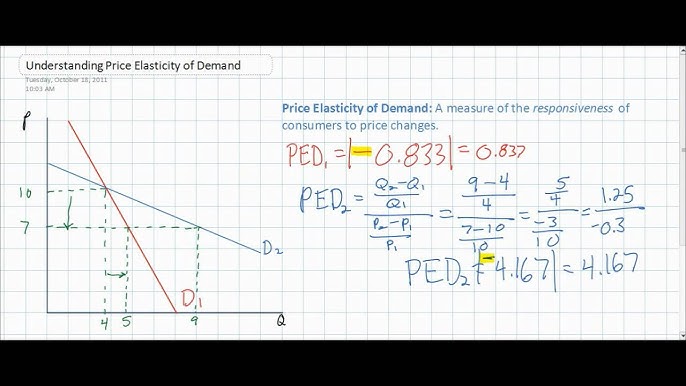 Understanding Price Elasticity of Demand
Tuesday, October 18, 2011
10:03 AM
Price Elasticity of Demand: A measure of the responsiveness of
consumers to price changes.
PED₁ = |-0.833| = 0.837
PED₂ = ((Q₂-Q₁)/Q₁)/((P₂-P₁)/P₁) = ((9-4)/4)/((7-10)/10) = (5/4)/(-3/10) = 1.25/-0.3
PED₂ |-4.167| = 4.167
P
10
7
D₂
D₁
4 5 9 Q